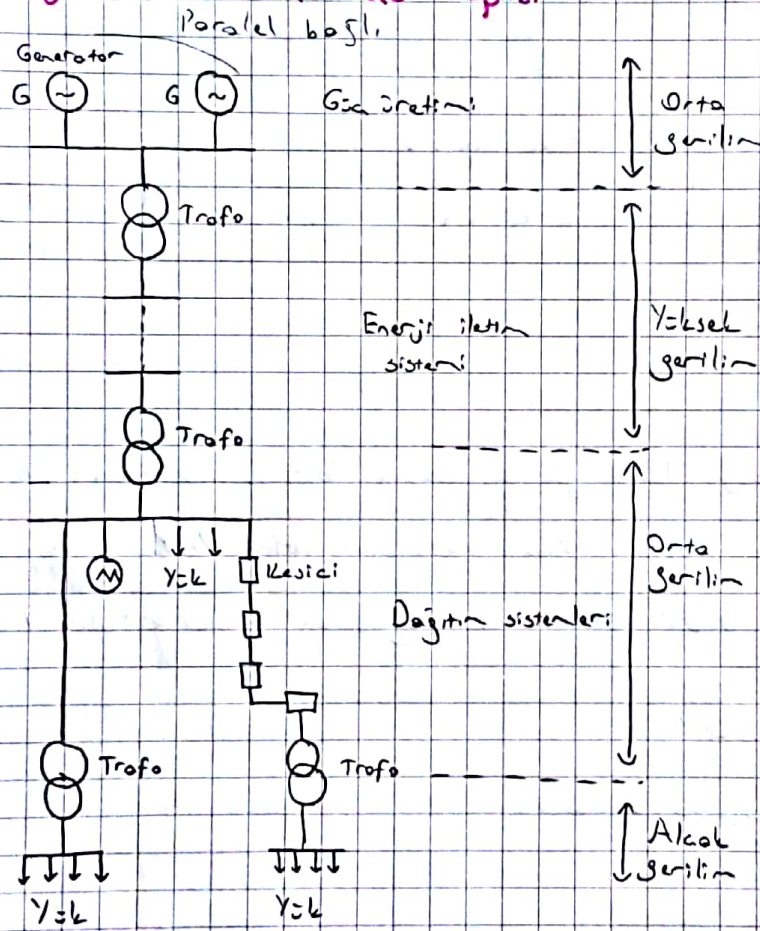 Paralel bağlı
Generator
G
G
Güç üretimi
Orta
gerilim
Trafo
Enerji iletim
sistemi
Yüksek
gerilim
Trafo
Yük
Kesici
Orta
gerilim
Dağıtım sistemleri
M
Trafo
Trafo
Alçak
gerilim
Yük
Yük